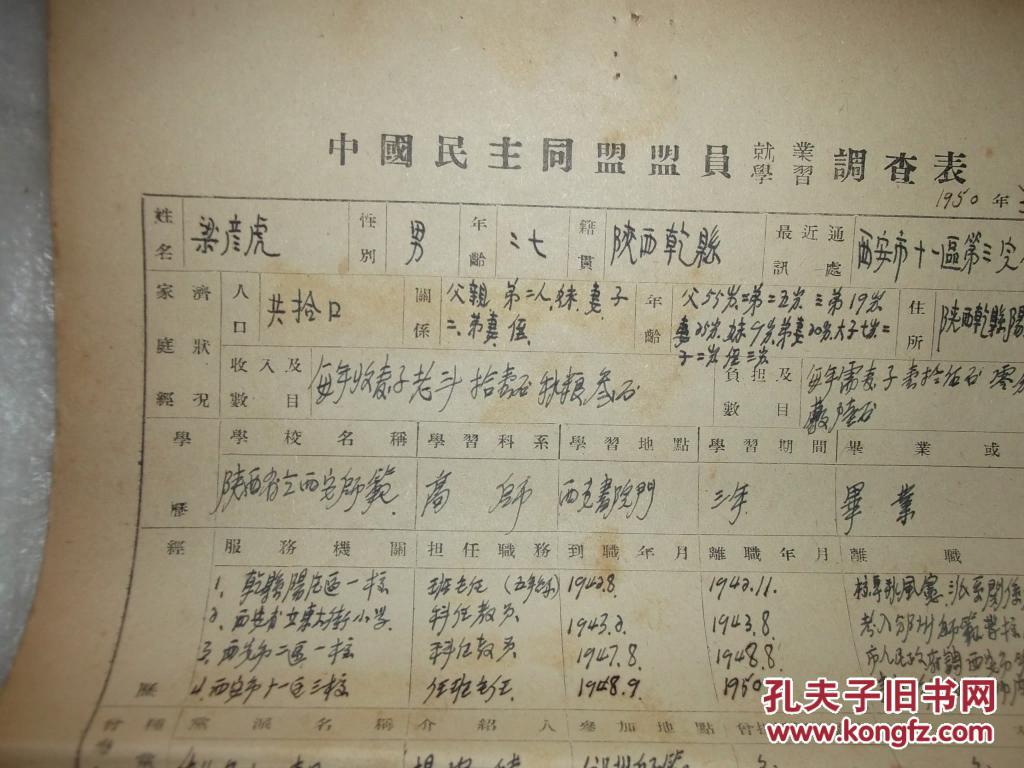 中國民主同盟盟員就業學習調查表
1950年
姓名 梁彦虎 性別 男 年齡 二七 籍貫 陝西乾縣 最近通訊處 西安市十一區第三完
家庭經濟狀況 人口 共拾口 關係 父親 第二人 妹 妻 子二 弟妻 侄 年齡 父55岁 二弟二五岁 三弟19岁 妻25岁 妹9岁 弟妻20岁 大子七岁 二子二岁 侄三岁 住所 陝西乾縣陽
收入及數目 每年收麦子老斗拾 石秋粮叁石 負担及數目 每年需麦子 拾伍石 零
學歷 學校名稱 學習科系 學習地點 學習期間 畢業或
陝西省立西安師範 高師 西安書院門 三年 畢業
經歷 服務機關 担任職務 到職年月 離職年月 離職
1. 乾縣陽 區一校 班主任 1942.8. 1942.11.
2. 西安省立東大街小学 科任教员 1943.2. 1943.8. 考入邠州師範學校
3. 西安市二區一校 科任教员 1947.8. 1948.8. 市人民政府調西安市
4. 西安市十一區三校 任班主任 1948.9. 1950
曾 種黨派名稱 介紹人 參加地點 曾担
孔夫子旧书网
www.kongfz.com